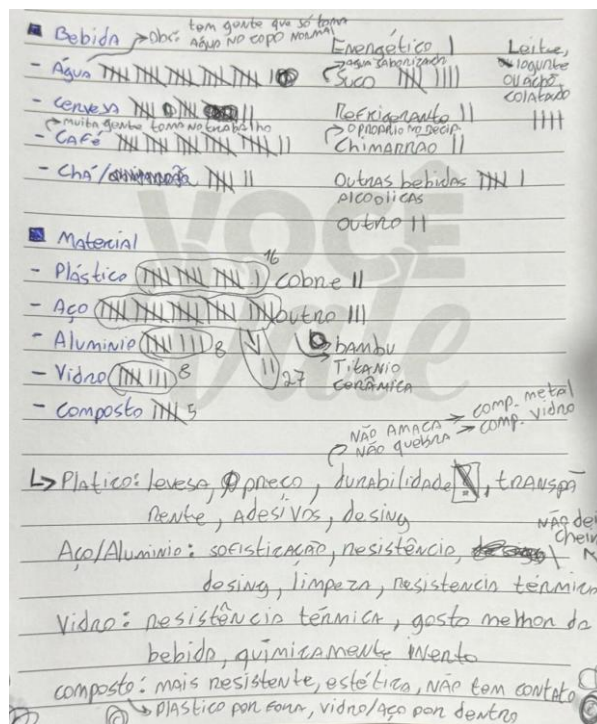 Bebida → Obs: tem gente que só toma
água no copo normal
- Água
- Cerveja
→ muita gente toma no trabalho
- Café
- Chá/
Energético
→ água saborizada
Suco
Refrigerante
→ o próprio nome decia
Chimarrão
Outras bebidas
alcoolicas
outro
Leite,
iogurte
ou acho
colatado
Material
- Plástico 16 cobre
- Aço outro
- Aluminio 8
- Vidro 8
27
- Composto 5
bambu
Titanio
cerâmica
NÃO AMAÇA → comp. metal
NÃO quebra → comp. vidro
↳ Platico: levesa, preco, durabilidade, transpa
rente, adesivos, desing
Aço/Aluminio: sofisticação, resistêncio,
desing, limpeza, resistencia térmica
NÃO dei
cheir
Vidro: resistência térmica, gosto melhor da
bebida, quimicamente inento
composto: mais resistente, estética, não tem contato
↳ plastico por fora, vidro/aço por dentro
VOCÊ
vale